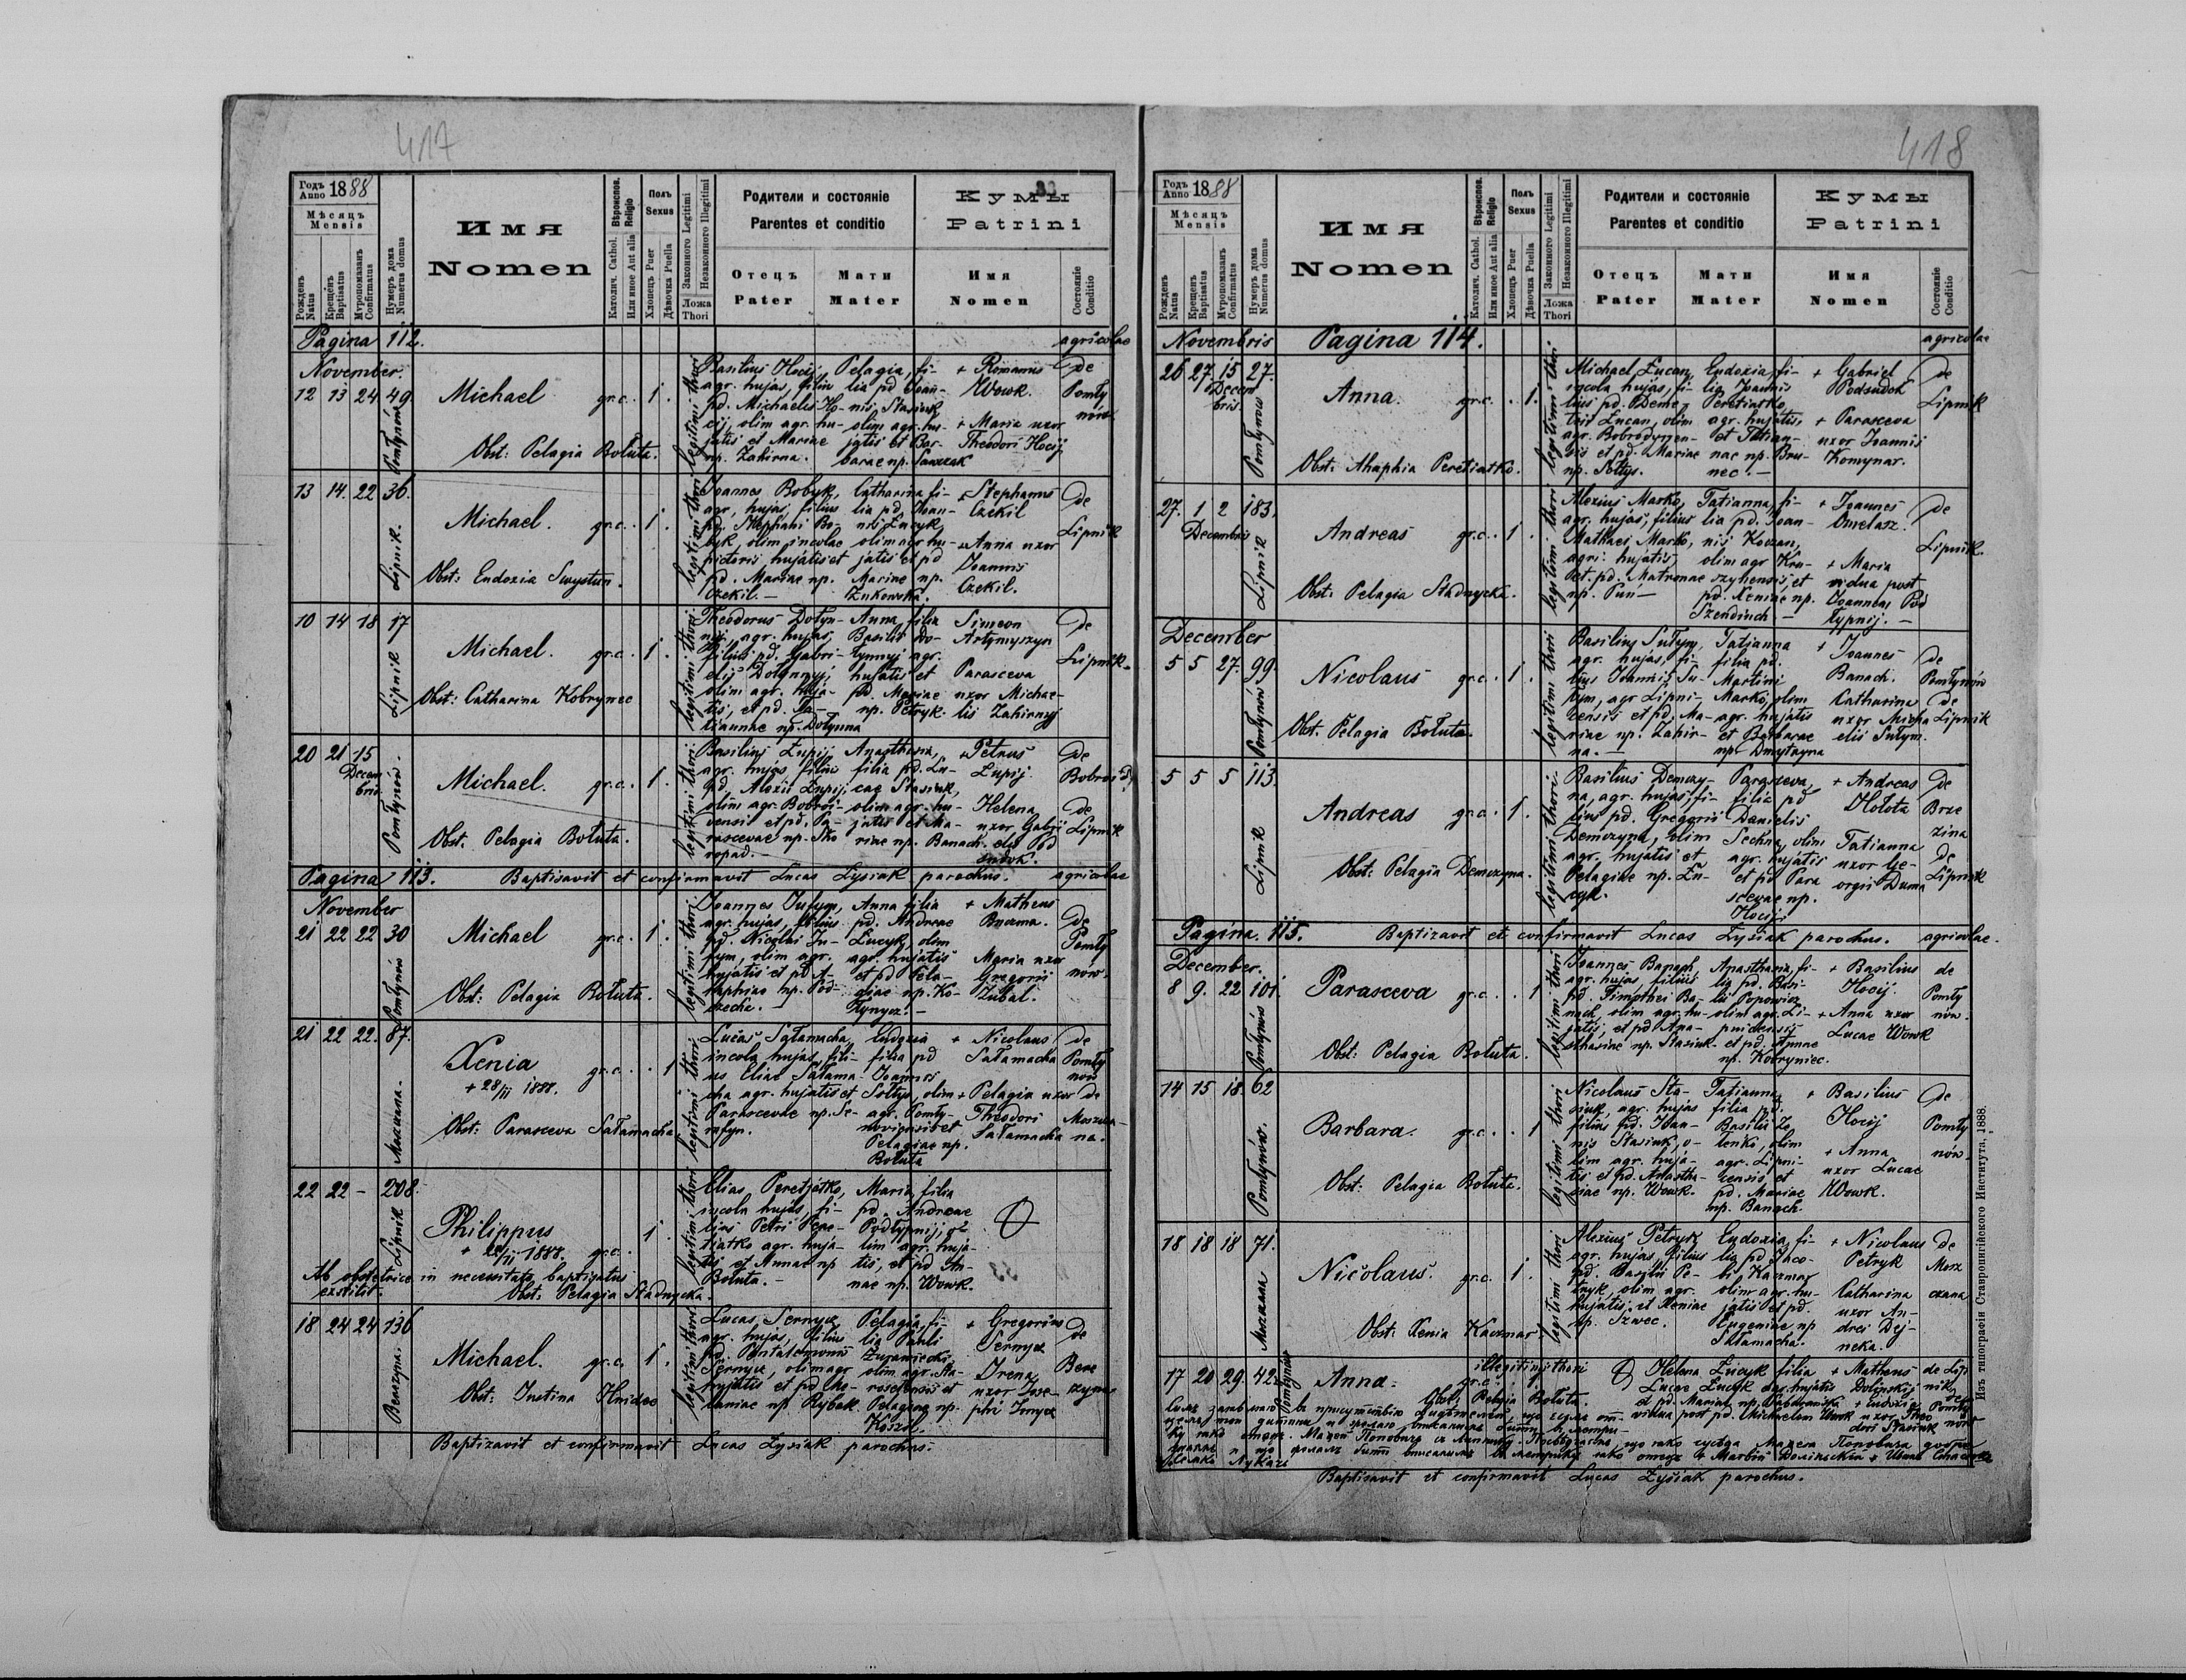 417
Годъ Anno 1888
Мѣсяцъ
Mensis
Рожденъ Natus
Крещенъ Baptisatus
Мѵропомазанъ Confirmatus
Нумеръ дома Numerus domus
Имя
Nomen
Вѣроисповъ. Religio
Католич. Cathol.
Или иное Aut alia
Полъ
Sexus
Хлопецъ Puer
Дѣвочка Puella
Законного Legitimi
Незаконного Illegitimi
Ложа
Thori
Родители и состояніе
Parentes et conditio
Отецъ
Pater
Мати
Mater
Кумы
Patrini
Имя
Nomen
Состояніе
Conditio
Pagina 112. agricolae
November.
12 13 24 49
Pomłynów
Michael gr.c. 1.
Obst: Pelagia Bołuta.
legitimi thori
Basilius Hocij,
agr. hujas, filius
pd. Michaelis Ho-
cij, olim agr. hu-
jatis et Mariae
np. Zahirna.
Pelagia, fi-
lia pd Joan-
nis Stasiuk
olim agr. hu-
jatis et Bar-
barae np.
+ Romanus
Wowk.
+ Maria uxor
Theodori Hocij
de
Pomły
nów
13 14. 22 36.
Lipnik.
Michael. gr.c. 1.
Obst: Eudoxia Swystun.
legitimi thori
Joannes Bobyk,
agr. hujas, filius
pd. Stephani Bo-
byk, olim incolae
pictoris hujatis et
pd. Mariae np.
Czekil. —
Catharina fi-
lia pd. Joan-
nis Łucyk,
olim agr hu-
jatis et pd
Mariae np.
Żukowska.
+ Stephanus
Czekil
+ Anna uxor
Joannis
Czekil.
de
Lipnik
10 14 18 17
Lipnik
Michael. gr.c. 1.
Obst: Catharina Kobrynec
legitimi thori
Theodorus Dołyn-
nyj, agr. hujas,
filius pd. Gabri-
elis Dołynnyj
olim agr. huja-
tis, et pd. Ta-
tiannae np. Dołynna
Anna filia
Basilii Do-
łynnyj agr.
hujatis et
pd. Mariae
np. Petryk.
Simeon
Artymyszyn
Parasceva
uxor Michae-
lis Zahirnyj
de
Lipnik.
20 21 15
Decem
bris
Pomłynów.
Michael. gr.c. 1.
Obst. Pelagia Bołuta.
legitimi thori
Basilius Łupij,
agr. hujas filius
pd. Alexii Łupij,
olim agr. Bobroi-
densis et pd. Pa-
rascevae np. Sko
ropad. —
Anasthasia,
filia pd. Lu-
cae Stasiuk,
olim agr. hu-
jatis et Ma-
riae np. Banach.
+ Petrus
Łupij.
Helena
uxor Gabri
elis Pod
sudok.
de
Bobroid
de
Lipnik
Pagina 113. Baptisavit et confirmavit Lucas Łysiak parochus. agricolae
November
21 22 22 30
Pomłynów
Michael gr.c. 1.
Obst: Pelagia Bołuta.
legitimi thori.
Joannes
agr. hujas, filius
pd. Nicolai
olim agr.
hujatis et pd A-
haphiae np. Pod-
Anna filia
pd. Andreae
Łucyk, olim
agr. hujatis
et pd Pela-
giae np. Ko-
+ Matheus
Buczma.
Maria uxor
Gregorii
Zubal.
de
Pomły
nów.
21 22 22. 87.
Moszczana
Xenia gr.c. 1
+ 28/11 1888.
Obst: Parasceva Sałamacha
legitimi thori
Lucas Sałamacha,
incola hujas, fili-
us Eliae Sałama-
cha agr. hujatis et
Parascevae np. Se-
rafyn.
Eudoxia
filia pd
Joannis
Sołtys, olim
agr. Pomły-
noviensis et
Pelagiae np.
Bołuta
+ Nicolaus
Sałamacha
+ Pelagia uxor
Theodori
Sałamacha
de
Pomły
nów
de
Moszcza-
na.
22 22 — 208.
Lipnik
Philippus gr.c. 1
+ 22/11 1888.
Ab obstetrice in necessitate baptisatus
extitit. Obst: Pelagia Stadnycka.
legitimi thori
Elias Peretjatko,
incola hujas, fi-
lius Petri Pere-
tiatko agr. huja-
tis et Annae np
Bołuta. —
Maria filia
pd. Andreae
Podłypnij, o-
lim agr. huja-
tis, et pd An-
nae np. Wowk.
18 24 24 136
Berezyna.
Michael. gr.c. 1.
Obst: Justina Hnidec
legitimi thori
Lucas Sernyk
agr. hujas, filius
pd. Pantalemonis
Sernyk, olim agr
hujatis et pd
np Rybak
Pelagia, fi-
lia Pauli
olim agr. Sta-
rosełensis et
Pelagiae np.
Kozioł.
+ Gregorius
Sernyk
Irena
uxor Jose-
phi
de
Bere
zyna
Baptizavit et confirmavit Lucas Łysiak parochus.
418
Годъ Anno 1888
Мѣсяцъ
Mensis
Рожденъ Natus
Крещенъ Baptisatus
Мѵропомазанъ Confirmatus
Нумеръ дома Numerus domus
Имя
Nomen
Вѣроисповъ. Religio
Католич. Cathol.
Или иное Aut alia
Полъ
Sexus
Хлопецъ Puer
Дѣвочка Puella
Законного Legitimi
Незаконного Illegitimi
Ложа
Thori
Родители и состояніе
Parentes et conditio
Отецъ
Pater
Мати
Mater
Кумы
Patrini
Имя
Nomen
Состояніе
Conditio
Novembris Pagina 114. agricolae
26 27 15 27.
Decem
bris.
Pomłynów
Anna. gr.c. 1.
Obst: Ahaphia Peretiatko.
legitimi thori
Michael Łucan,
incola hujas, fi-
lius pd. Deme-
trii Łucan, olim
agr. Bobrodynen-
sis et pd. Mariae
np. Sołtys.
Eudoxia, fi-
lia Joannis
Peretiatko,
agr. hujatis,
et Tatian-
nae np. Bru-
nec. —
+ Gabriel
Podsudok
+ Parasceva
uxor Joannis
Komynar.
de
Lipnik
27. 1 2 183.
Decembris
Lipnik
Andreas gr.c. 1.
Obst: Pelagia Stadnycka.
legitimi thori
Alexius Marko,
agr. hujas, filius
Mathaei Marko,
agri. hujatis,
et. pd. Matronae
np. Pun —
Tatianna, fi-
lia pd. Joan-
nis Koczan,
olim agr Kru-
szyhensis, et
pd. Xeniae np.
Szendiuch —
+ Joannes
Omelasz.
+ Maria
vidua post
Joannem Pod
łypnij. —
de
Lipnik.
December
5 5 27. 99.
Pomłynów
Nicolaus gr.c. 1.
Obst. Pelagia Bołuta
legitimi thori
Basilius Sułym,
agr. hujas, fi-
lius Joannis Su-
łym, agr Lipni-
censis et pd. Ma-
riae np. Zahir-
na. —
Tatjanna
filia pd.
Martini
Marko, olim
agr. hujatis
et Barbarae
np. Dmytryna
+ Joannes
Banach.
Catharina
uxor Micha
elis Sułym.
de
Pomłynów
de
Lipnik
5 5 5 113.
Lipnik
Andreas gr.c. 1.
Obst: Pelagia Demczyna.
legitimi thori.
Basilius Demczy-
na, agr. hujas, fi-
lius pd. Gregorii
Demczyna, olim
agr. hujatis et
Pelagiae np. Łu-
cyk.
Parasceva,
filia pd
Danielis
Sechna, olim
agr. hujatis
et pd Para
scevae np.
Hocij.
+ Andreas
Hołota
Tatianna
uxor Ge-
orgii Duma
de
Brze
zina
de
Lipnik
Pagina. 115. Baptizavit et confirmavit Lucas Łysiak parochus. agricolae.
December.
8 9. 22 101.
Pomłynów
Parasceva gr.c. 1
Obst: Pelagia Bołuta.
legitimi thori
Joannes Banach,
agr. hujas filius
pd. Timothei Ba-
nach, olim agr. hu-
jatis, et pd Ana-
sthasiae np. Stasiuk
Anasthasia, fi-
lia pd. Basi-
lii Popowicz
olim agr. Li-
pnicensis
et pd. Annae
np. Kobryniec.
+ Basilius
Hocij.
+ Anna uxor
Lucae Wowk
de
Pomły
nów.
14 15 18 62
Pomłynów.
Barbara. gr.c. 1
Obst: Pelagia Bołuta.
legitimi thori
Nicolaus Sta-
siuk, agr. hujas
filius pd. Joan-
nis Stasiuk, o-
lim agr. huja-
tis et pd. Anastha-
siae np. Wowk.
Tatianna,
filia pd.
Basilii
olim
agr. Lipni-
censis et
pd. Mariae
np. Banach
+ Basilius
Hocij
+ Anna
uxor Lucae
Wowk.
de
Pomły
nów.
18 18 18 71.
Moszczana
Nicolaus. gr.c. 1.
Obst: Xenia Kaczmar
legitimi thori
Alexius Petryk
agr. hujas, filius
pd. Basilii Pe-
tryk, olim agr.
hujatis, et Xeniae
np. Szwec.
Eudoxia, fi-
lia pd. Jaco-
bi Kaczmar
olim agr. hu-
jatis et pd.
Eugeniae np
Skłamacha.
+ Nicolaus
Petryk
Catharina
uxor An-
drei Dej-
neka.
de
Mosz
czana
17 20 29. 42.
Pomłynów
Anna. gr.c. 1
illegitimi thori
Obst. Pelagia Bołuta.
Helena Łucyk filia
Lucae Łucyk agr. hujatis
et pd. Mariae np.
vidua post pd. Michaelem Wowk
+ Matheus
Dolinskij
+ Eudoxia
uxor Theo
dori Stasiuk
de Lip
nik
de
Pomły
nów
Baptisavit et confirmavit Lucas Łysiak parochus.
Изъ типографіи Ставропигійского Института, 1888.